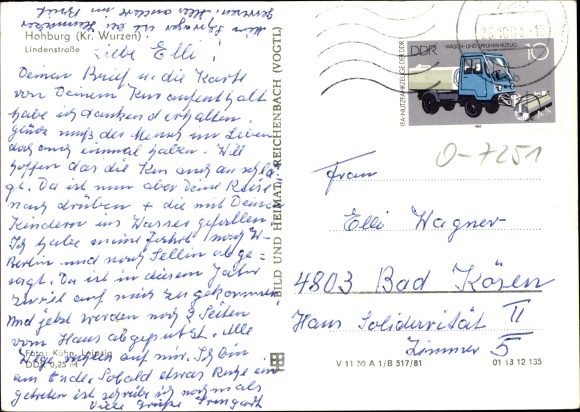 Hohburg (Kr. Wurzen)
Lindenstraße
Liebe Elli!
Deinen Brief u. die Karte
von Deinem Kuraufenthalt
habe ich dankend erhalten.
Glück muß der Mensch im Leben
doch auch einmal haben. Will
hoffen das die Kur auch anschlä-
gt. Da ist nun aber Deine Reise
nach drüben + die mit Deinen
Kindern ins Wasser gefallen.
Ich habe meine Fahrt nach W-
Berlin und nach Sellin abge-
sagt. Da ist in diesem Jahr
zuviel auf mich zugekommen.
Und jetzt werden noch 2 Seiten
vom Haus abgeputzt. Alle
Wege auf mir. Ich bin
am Ende. Sobald etwas Ruhe ein-
getreten ist schreibe ich nochmals
Viele Grüße Irmgard
Foto: Kühn, Leipzig
DDR 0,25 M
BILD UND HEIMAT, REICHENBACH (VOGTL)
V 11 50 A 1/B 517/81
01 13 12 135
DDR
WASCH- UND SPRÜHFAHRZEUG
10
IFA-NUTZFAHRZEUGE DER DDR
1982
O-7251
Frau
Elli Wagner
4803 Bad Kösen
Haus Solidarität II
Zimmer 5